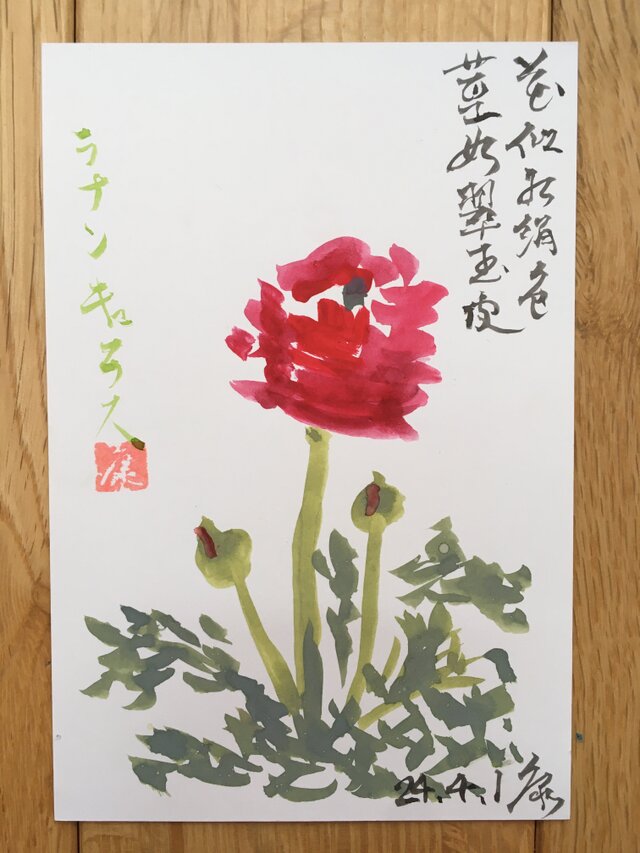 花似紅絹色
茎如翠玉皮
ラナンキュラス
康
24.4.1康